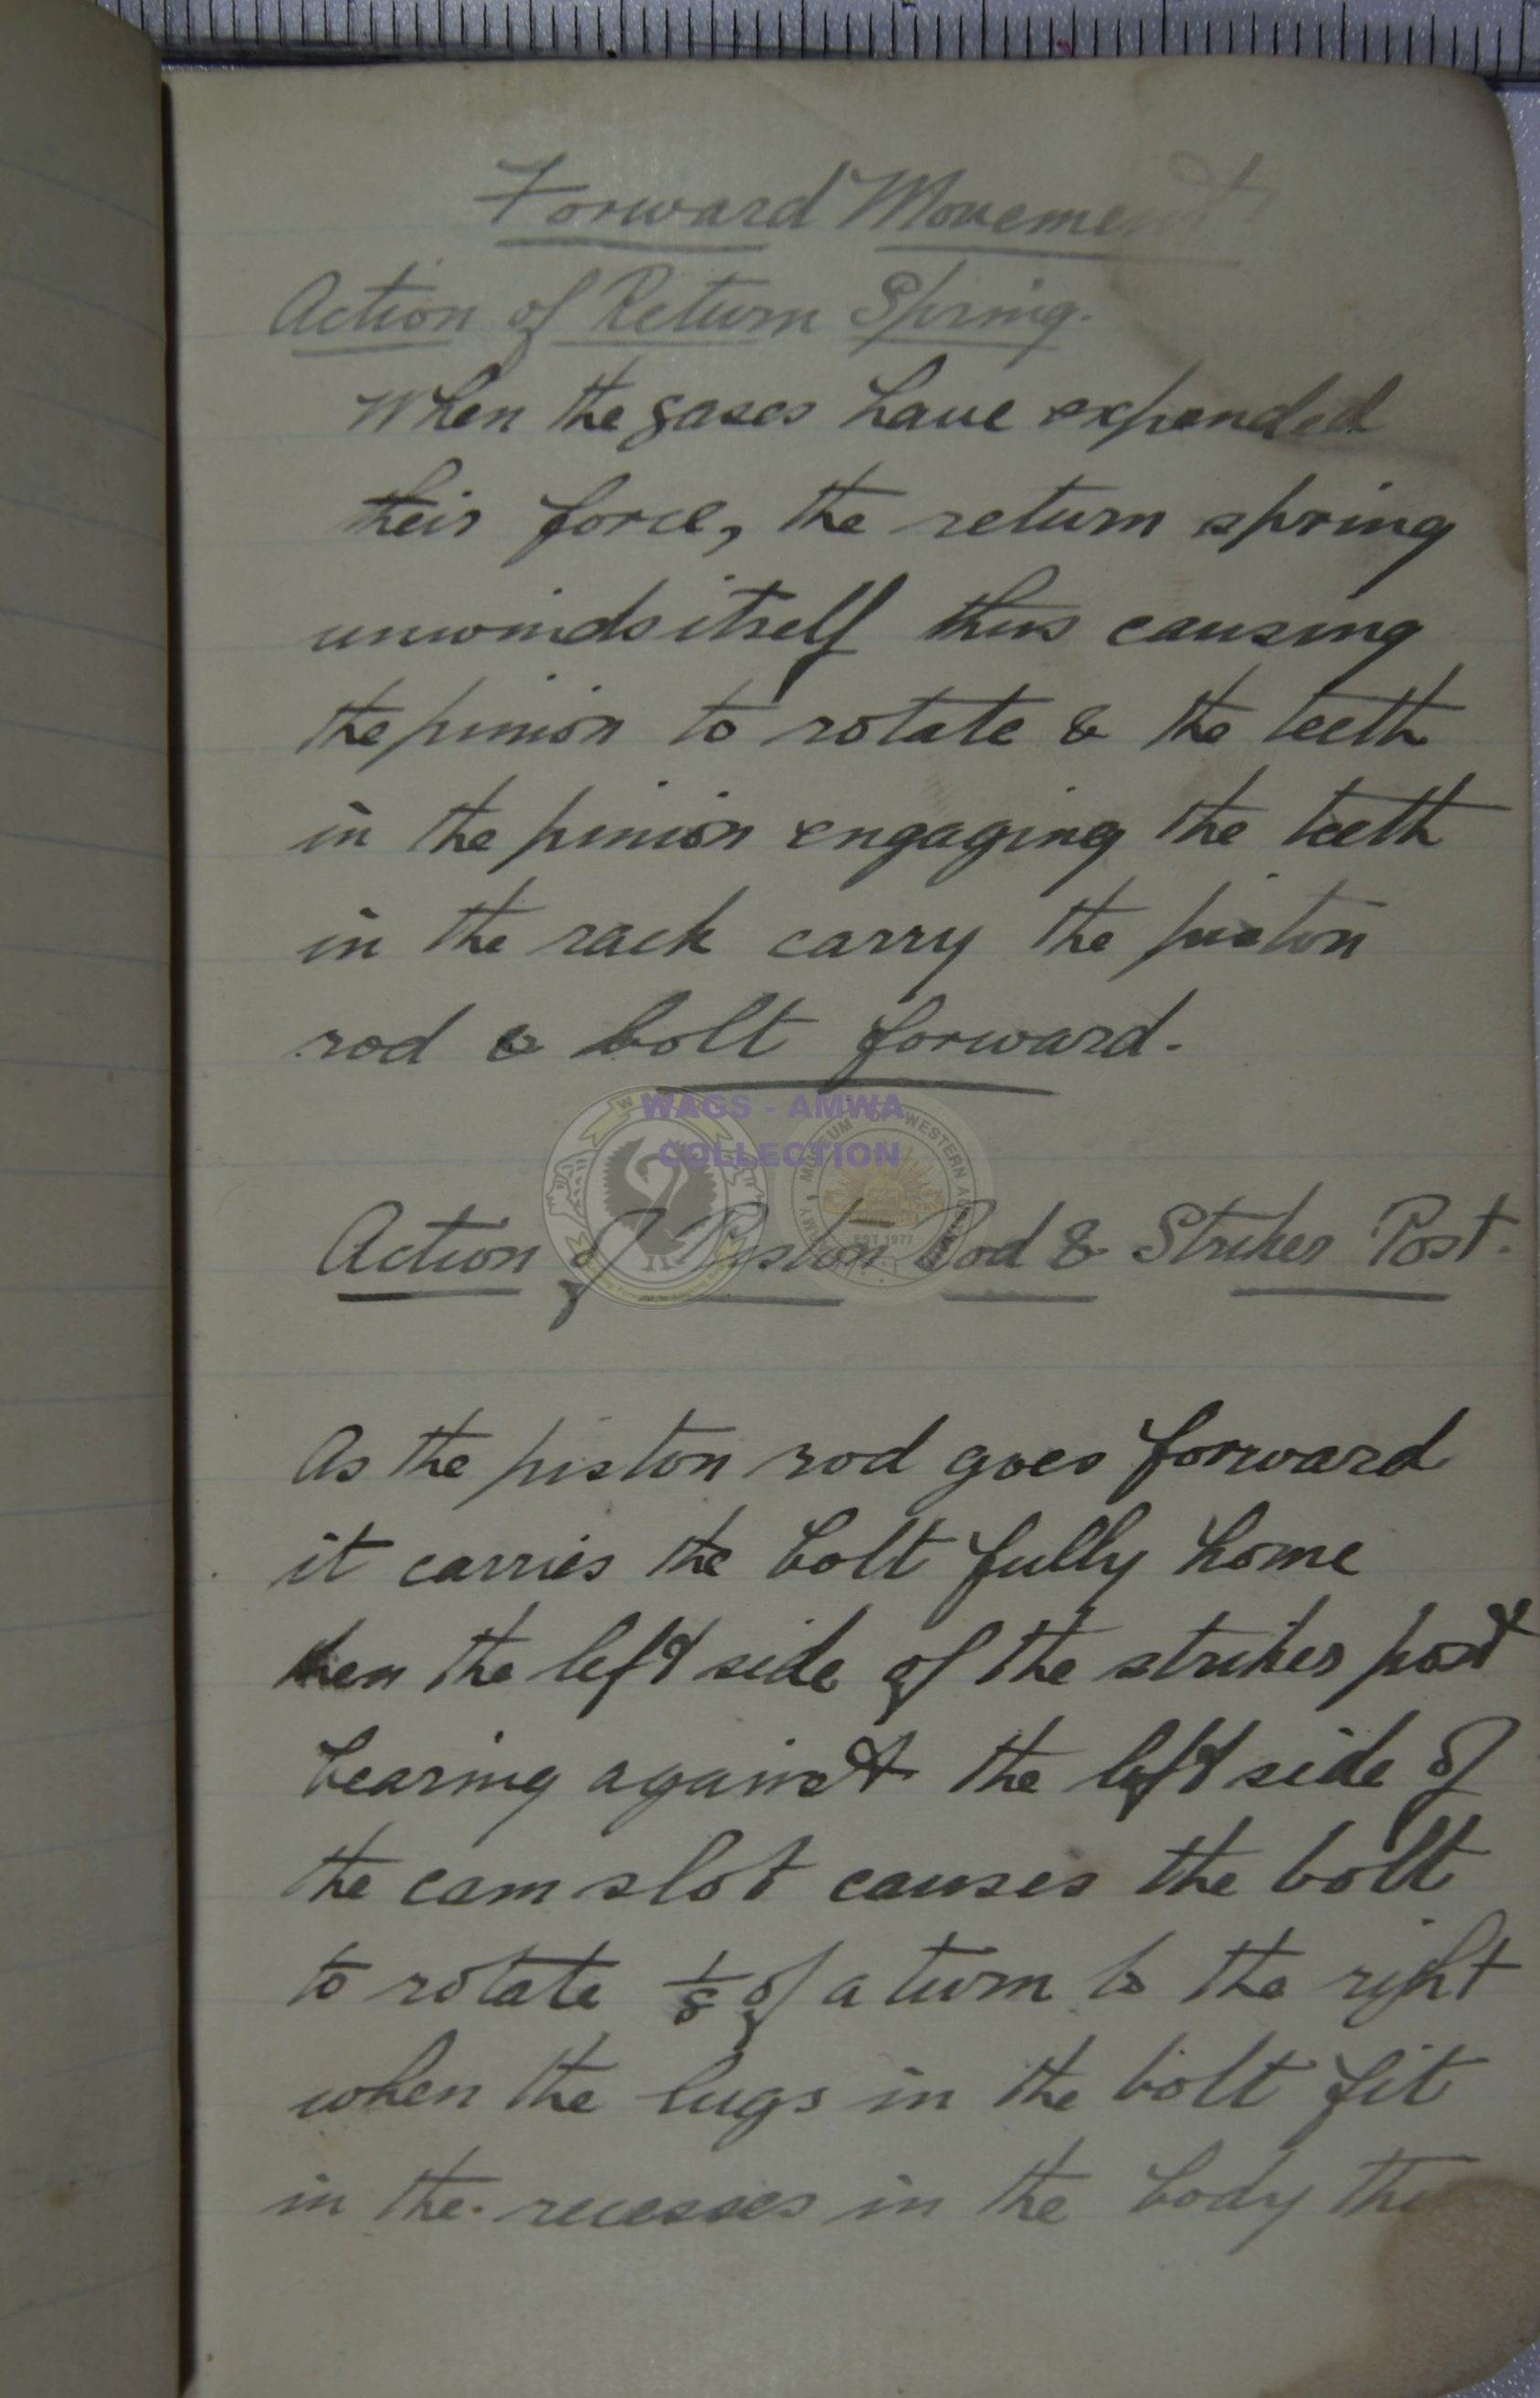 Forward Movement
Action of Return Spring.
When the gases have expended
their force, the return spring
unwinds itself thus causing
the pinion to rotate & the teeth
in the pinion engaging the teeth
in the rack carry the piston
rod & bolt forward.
WAGS - AMWA
COLLECTION
Action of Piston Rod & Striker Post.
As the piston rod goes forward
it carries the bolt fully home
then the left side of the striker post
bearing against the left side of
the cam slot causes the bolt
to rotate 1/8 of a turn to the right
when the lugs in the bolt fit
in the recesses in the body the